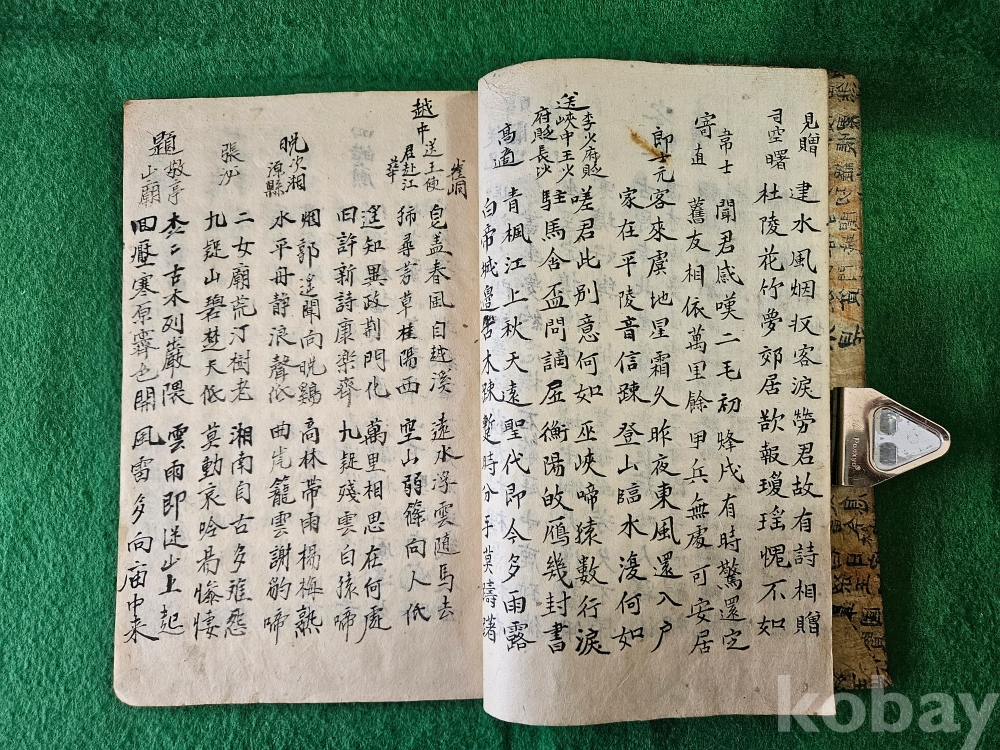 見贈 建水風烟収客淚 勞君故有詩相贈
司空曙 杜陵花竹夢郊居 欲報瓊瑤愧不如
寄韋士直 聞君感嘆二毛初 烽戍有時驚還定
舊友相依萬里餘 甲兵無處可安居
郎士元 客來虜地星霜久 昨夜東風還入户
家在平陵音信疎 登山臨水漫何如
送李少府貶峽中王少府貶長沙 嗟君此別意何如 巫峽啼猿數行淚
駐馬含盃問謫居 衡陽故鴈幾封書
高適 青楓江上秋天遠 聖代即今多雨露
白帝城邉苦木疎 暫時分手莫躊躇
崔峒
越中送王使君赴江華 皂盖春風自越溪 遠水浮雲隨馬去
稀尋芳草桂陽西 空山弱篠向人低
遙知異政荆門化 萬里相思在何處
旧許新詩康樂齊 九疑殘雲白猿啼
晩次湘源縣 烟郭遙聞向晩鷄 高林帶雨楊梅熟
水平舟静浪聲低 曲岸籠雲謝豹啼
張泌 二女廟荒汀樹老 湘南自古多離怨
九疑山碧楚天低 莫動哀吟易慘悽
題敬亭山廟 古木列巖隈 雲雨即送山上起
回壓寒原霽色開 風雷多向庙中来
kobay